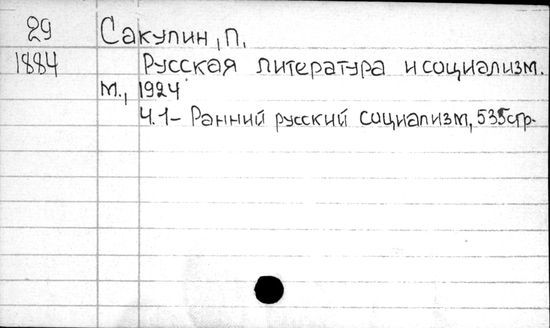 29 Сакулин, П.
1884 Русская литература и социализм.
М., 1924
Ч.1- Ранний русский социализм, 535 стр.